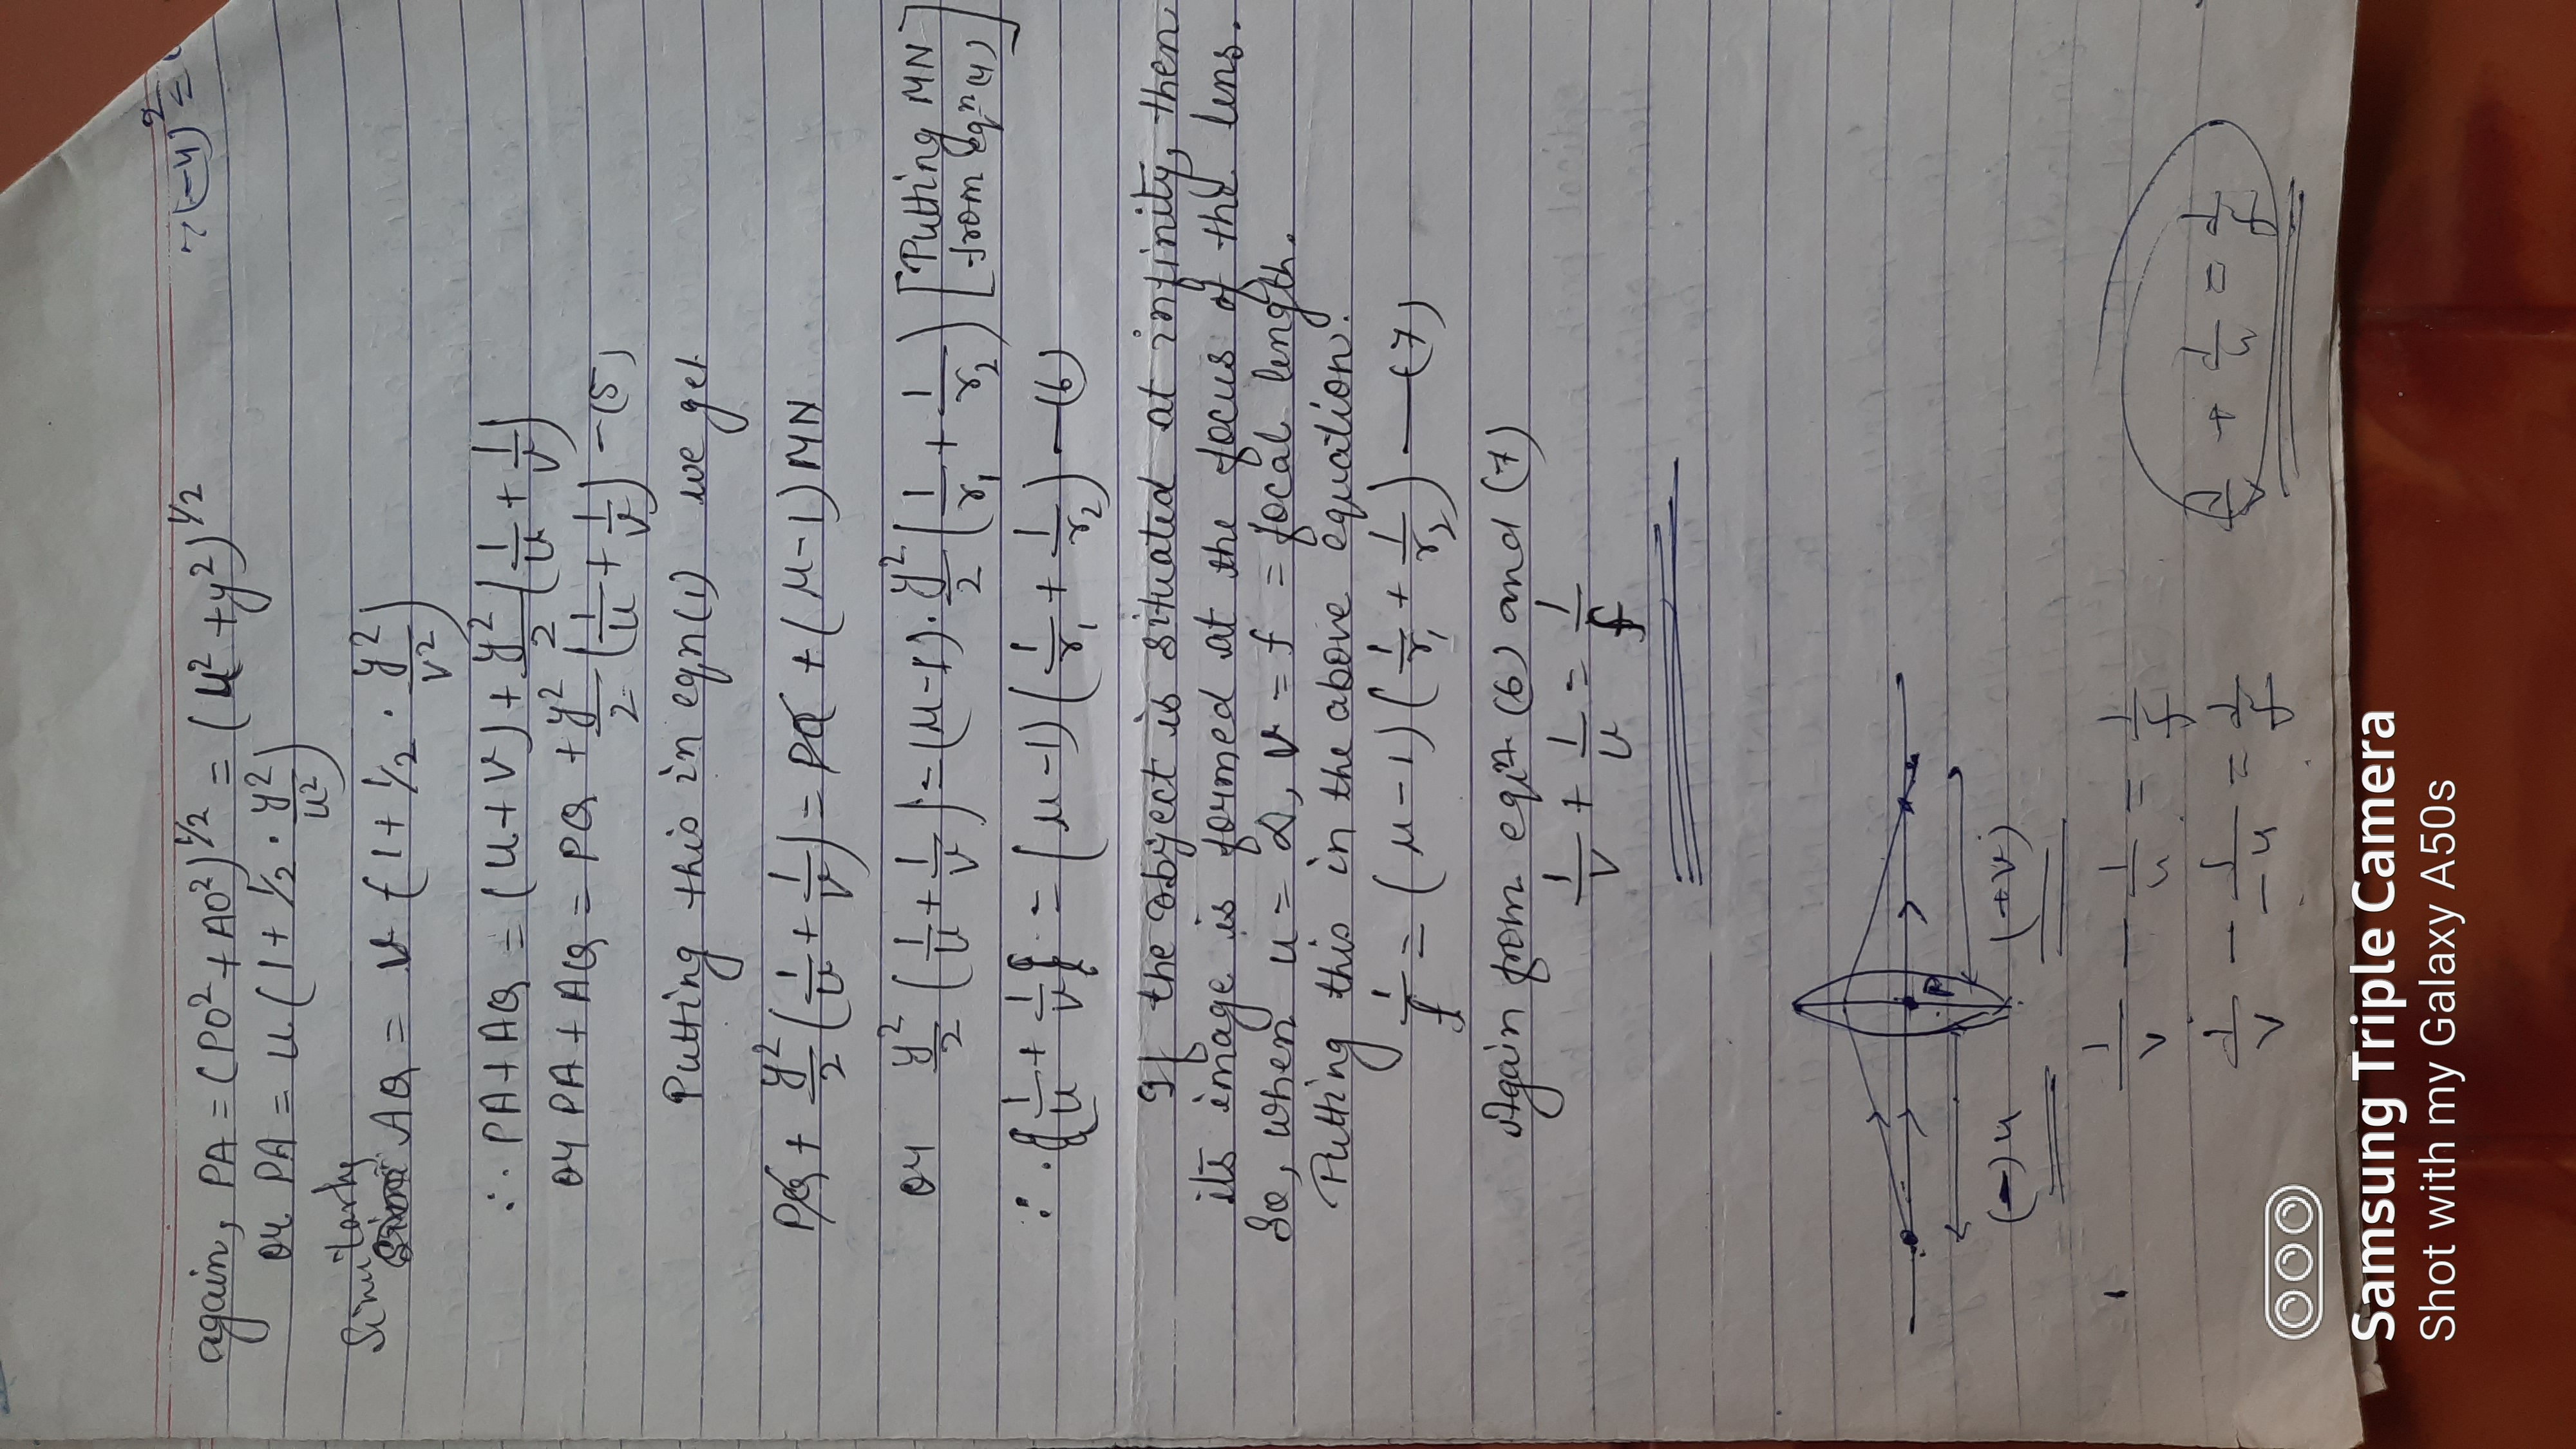 7(-4)² =
again, PA = (PO² + AO²)^1/2 = (u² + y²)^1/2
or PA = u (1 + 1/2 · y²/u²)
Similarly
AQ = v (1 + 1/2 · y²/v²)
∴ PA + AQ = (u + v) + y²/2 (1/u + 1/v)
or PA + AQ = PQ + y²/2 (1/u + 1/v) - (5)
Putting this in eqn (1) we get
PQ + y²/2 (1/u + 1/v) = PQ + (μ-1) MN
or y²/2 (1/u + 1/v) = (μ-1) · y²/2 (1/r₁ + 1/r₂) [Putting MN from eqⁿ (4)]
∴ (1/u + 1/v) = (μ-1) (1/r₁ + 1/r₂) — (6)
If the object is situated at infinity, then
its image is formed at the focus of the lens.
So, when u = ∞, v = f = focal length.
Putting this in the above equation.
1/f = (μ-1) (1/r₁ + 1/r₂) — (7)
Again from eqⁿ (6) and (7)
1/v + 1/u = 1/f
P
(-)u (+v)
1/v - 1/u = 1/f
1/v - 1/-u = 1/f 1/v + 1/u = 1/f
Samsung Triple Camera
Shot with my Galaxy A50s